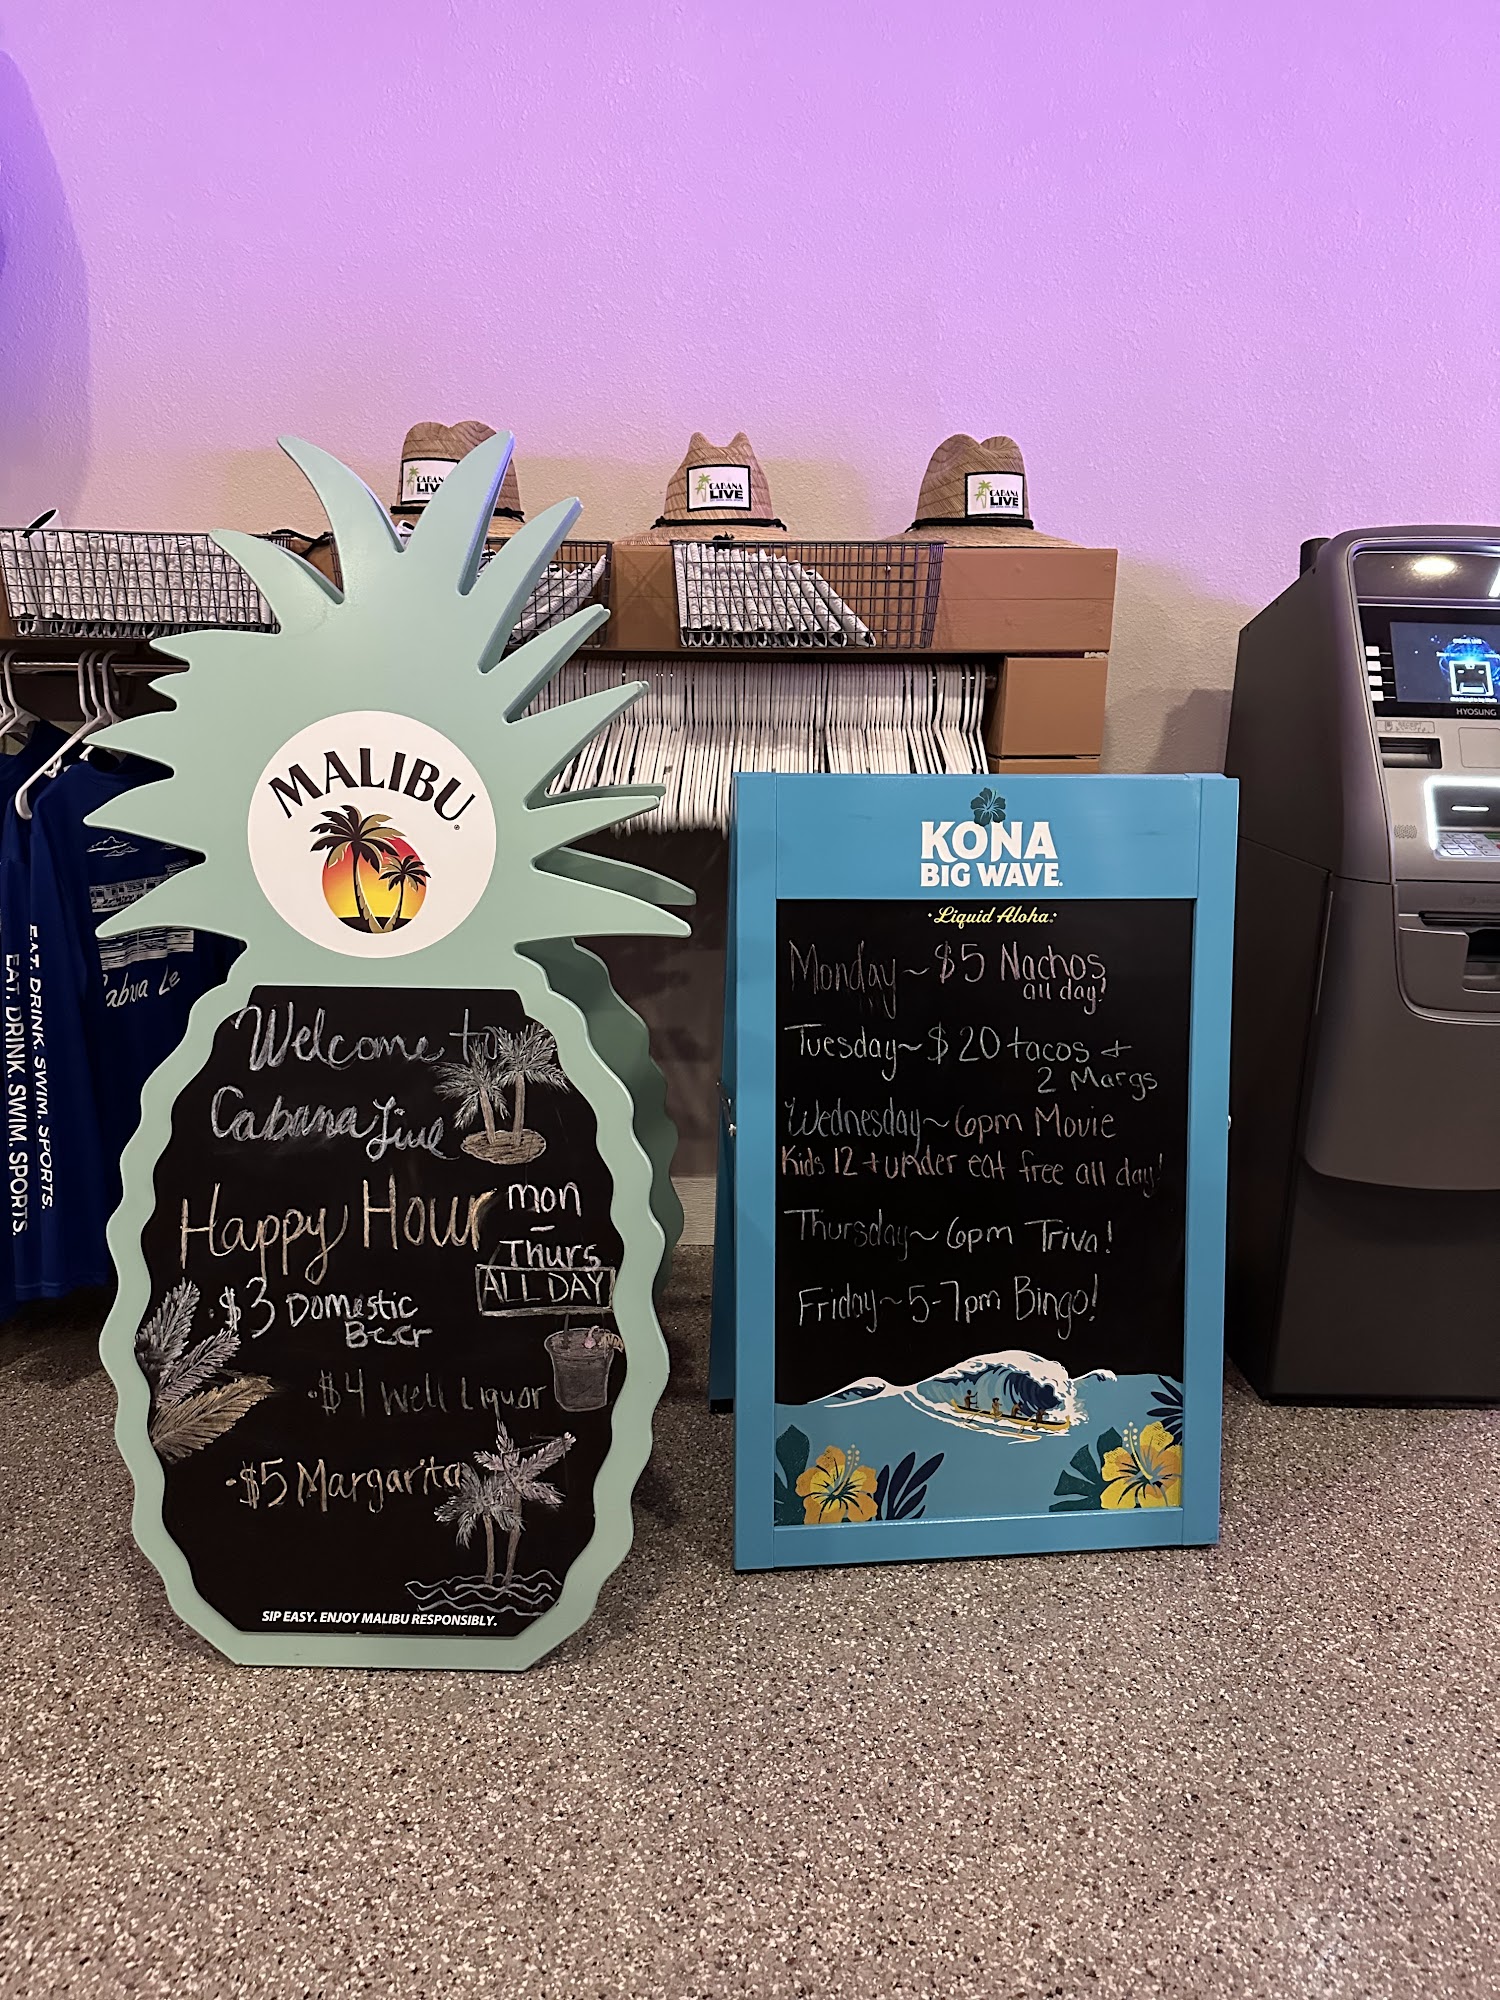 CABANA
LIVE
CABANA
LIVE
CABANA
LIVE
MALIBU
Welcome to
Cabana Live
Happy Hour
mon
-
Thurs
ALL DAY
·$3 Domestic
Beer
·$4 Well Liquor
·$5 Margarita
SIP EASY. ENJOY MALIBU RESPONSIBLY.
KONA
BIG WAVE®
·Liquid Aloha·
Monday~$5 Nachos
all day!
Tuesday~$20 tacos +
2 Margs
Wednesday~6pm Movie
Kids 12 + under eat free all day!
Thursday~6pm Triva!
Friday~5-7pm Bingo!
EAT. DRINK. SWIM. SPORTS.
EAT. DRINK. SWIM. SPORTS.
HYOSUNG